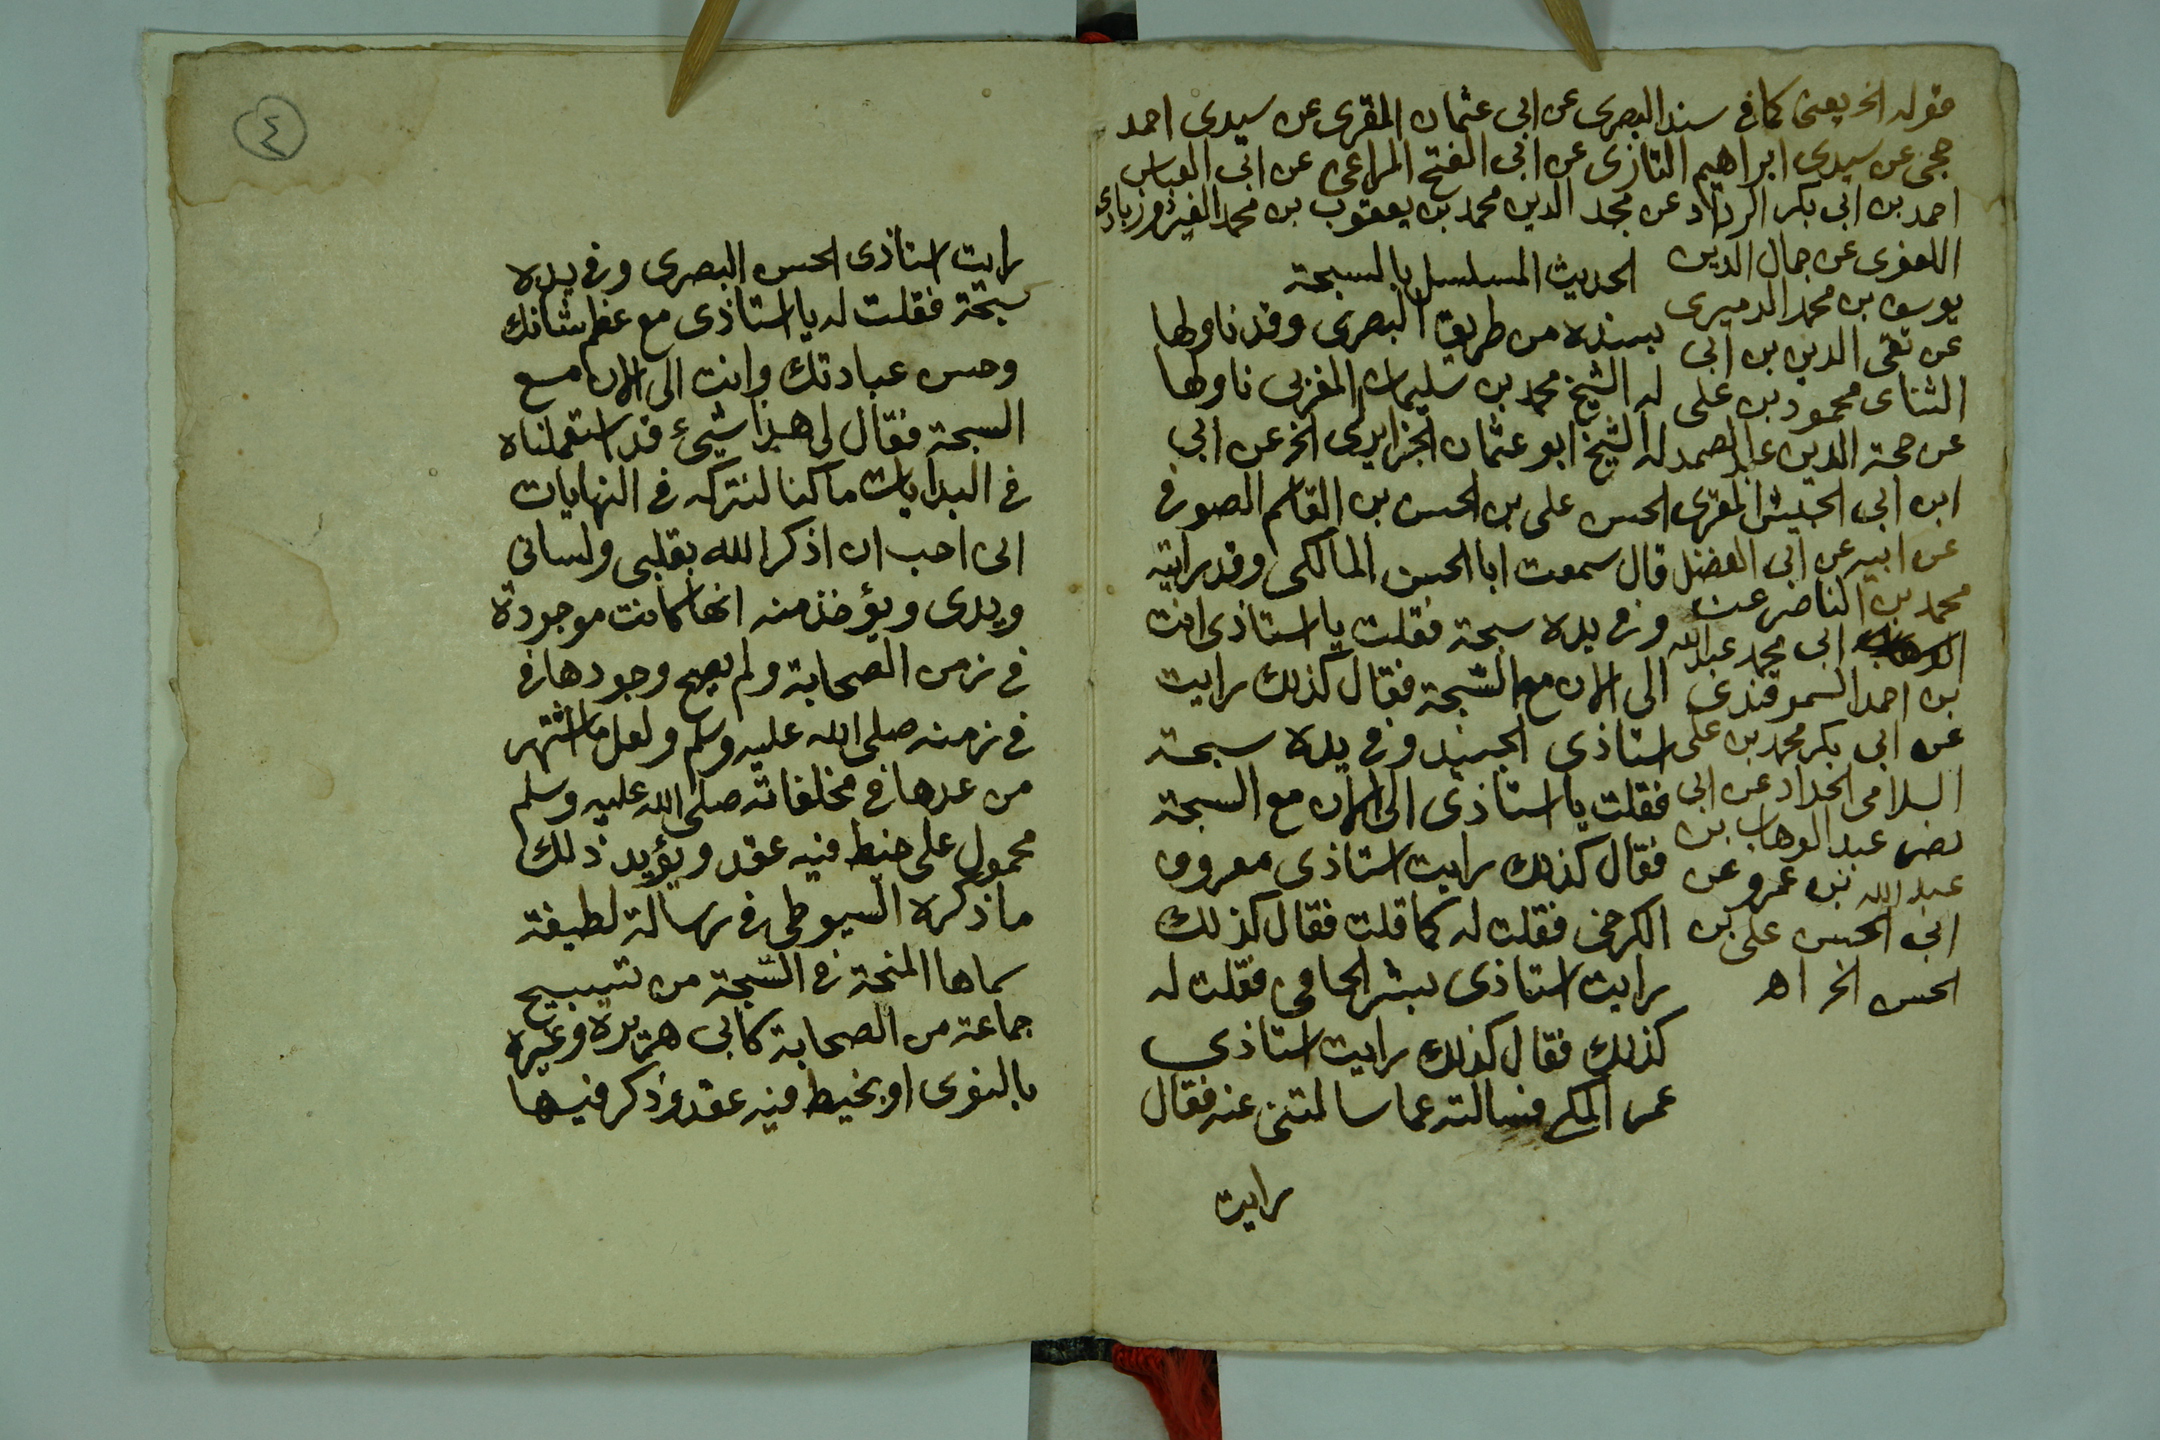 قوله الخ يعنى كما فى سند البصرى عن ابى عثمان المقرى عن سيدى احمد
حجى عن سيدى ابراهيم التازى عن ابى الفتح المراغى عن ابى العباس
احمد بن ابى بكر الرداد عن مجد الدين محمد بن يعقوب بن محمد الفيروزبادى
اللغوى عن جمال الدين
يوسف بن محمد الدميرى
عن تقى الدين بن ابى
الثناى محمود بن على
عن عبد الصمد
ابن ابى الجيش المقرى
عن ابيه عن ابى الفضل
محمد بن الناصر عن
ابى محمد عبد الله
بن احمد السمرقندى
عن ابى بكر محمد بن على
السلامى الحداد عن ابى
نصر عبد الوهاب بن
عبد الله بن عمرو عن
ابى الحسن على بن
الحسن الخ اه
الحديث المسلسل بالسبحة
بسنده من طريق البصرى وقد ناولها
له الشيخ محمد بن سليمان المغربى ناولها
له الشيخ ابو عثمان الجزايرى الخ عن ابى
الحسن على بن الحسن بن القاسم الصوفى
قال سمعت ابا الحسن المالكى وقد رايته
وفى يده سبحة فقلت يا استاذى انت
الى الان مع السبحة فقال كذلك رايت
استاذى الجنيد وفى يده سبحة
فقلت يا استاذى الى الان مع السبحة
فقال كذلك رايت استاذى معروف
الكرخى فقلت له كما قلت فقال كذلك
رايت استاذى بشر الحافى فقلت له
كذلك فقال كذلك رايت استاذى
عمر المكى فسالته عما سالتنى عنه فقال
رايت
٤
رايت استاذى الحسن البصرى وفى يده
سبحة فقلت له يا استاذى مع عظم شانك
وحسن عبادتك وانت الى الان مع
السبحة فقال لى هذا شيئ قد استعملناه
فى البدايات ما كنا لنتركه فى النهايات
انى احب ان اذكر الله بقلبى ولسانى
ويدى ويؤخذ منه انها كانت موجودة
فى زمن الصحابة ولم يصح وجودها فى
فى زمنه صلى الله عليه وسلم ولعل ما اشتهر
من عدها فى مخلفاته صلى الله عليه وسلم
محمول على خيط فيه عقد ويؤيد ذلك
ما ذكره السيوطى فى رسالة لطيفة
سماها المنحة فى السبحة من تسبيح
جماعة من الصحابة كابى هريرة وغيره
بالنوى او بخيط فيه عقد وذكر فيها